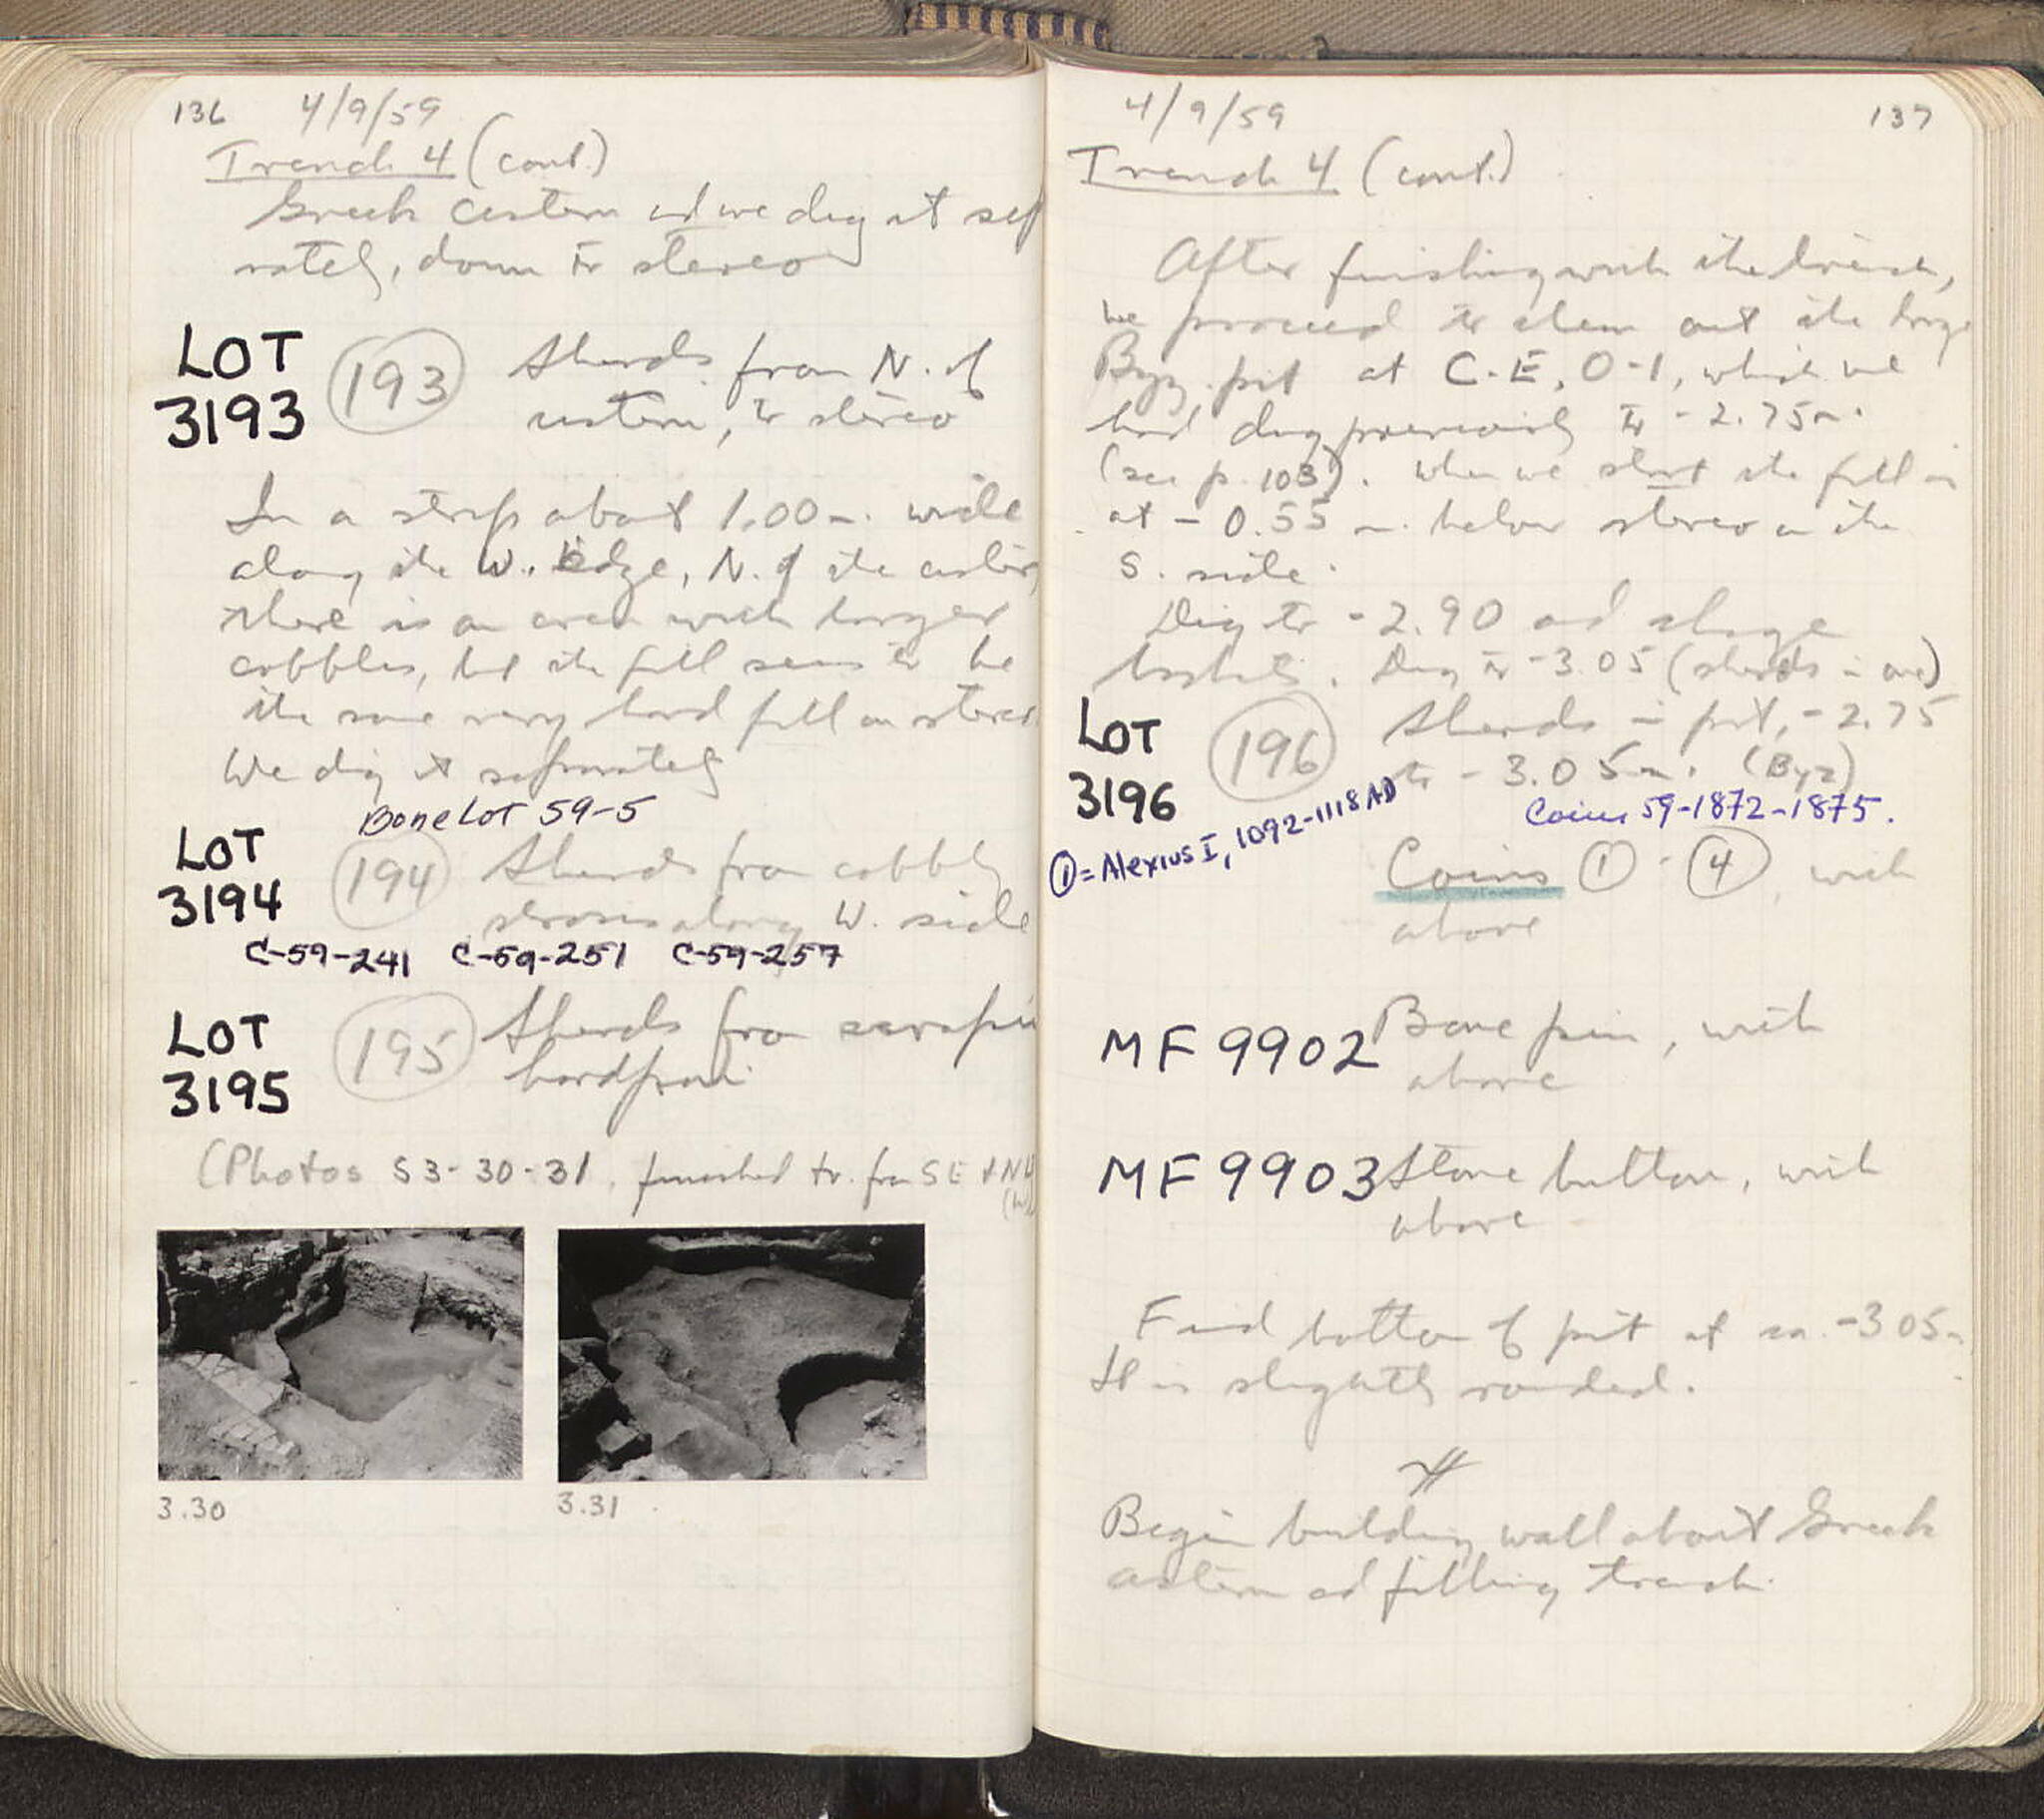 136 4/9/59
Trench 4 (cont.)
Greek cistern and we dig it sep
rately, down to stereo
LOT
3193
193 Sherds from N. of
cistern, to stereo
In a strip about 1.00 m. wide
along the W. edge, N. of the cistern
there is an area with larger
cobbles, but the fill seems to be
the same very hard fill on stereo
We dig it separately
Bone Lot 59-5
LOT
3194
194 Sherds from cobbly
along W. side
C-59-241 C-59-251 C-59-257
LOT
3195
195 Sherds from scrapin
hardpan
(Photos S3-30-31, finished tr. from SE + NW
3.30 3.31
4/9/59 137
Trench 4 (cont.)
After finishing with the trench,
we proceed to clean out the large
Byz. pit at C-E, 0-1, which we
had dug previously to -2.75 m.
(see p. 103). When we start the fill is
at -0.55 m. below stereo on the
S. side.
Dig to -2.90 and change
baskets. Dig to -3.05 (sherds in one)
LOT
3196
196 Sherds in pit, -2.75
to -3.05 m. (Byz)
Coins 59-1872-1875.
①=Alexius I, 1092-1118 AD
Coins ① - ④, with
above
MF 9902 Bone pin, with
above
MF 9903 Stone button, with
above
Find bottom of pit at ca. -3.05 m.
It is slightly rounded.
Begin building wall about Greek
cistern and filling trench.